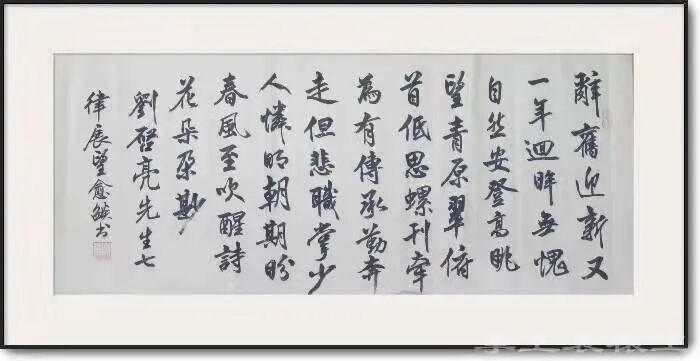 辭舊迎新又
一年迴眸無愧
自然安登高眺
望青原翠俯
首低思螺刊牽
為有傳承勤奔
走但悲職掌少
人憐明朝期盼
春風至吹醒詩
花朵朵妙
劉啓亮先生七
律展望愈鋑书